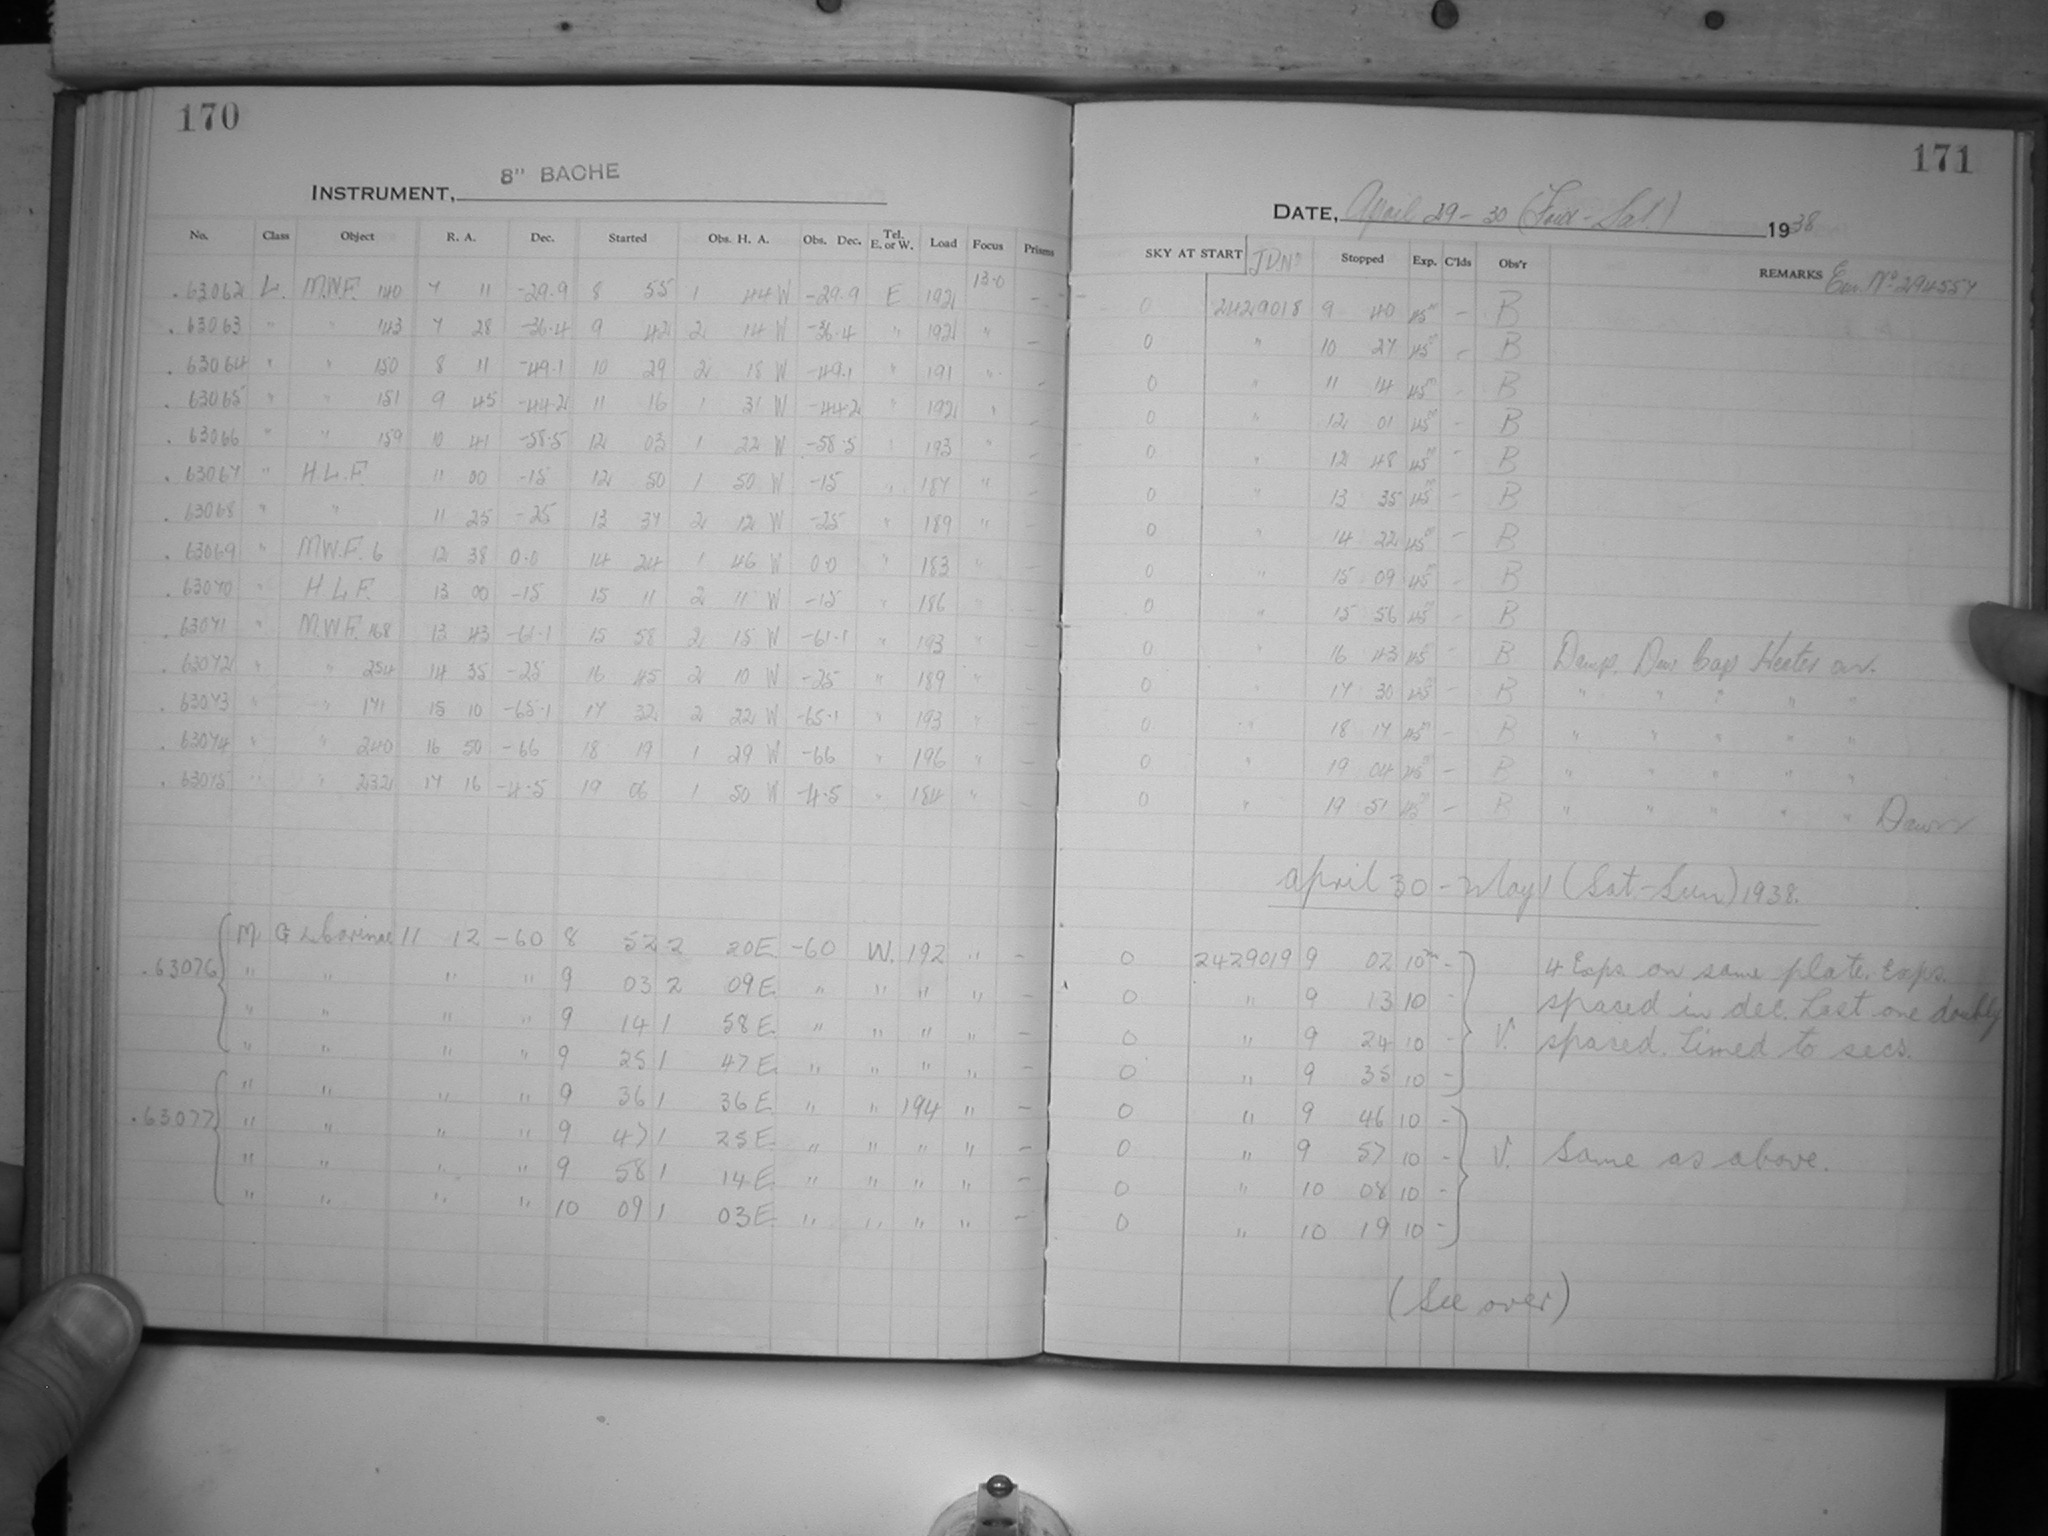 170
INSTRUMENT, 8" BACHE
No. Class Object R. A. Dec. Started Obs. H. A. Obs. Dec. Tel. E. or W. Load Focus Prisms
.63062 L. M.W.F. 140 7 11 -29.9 8 55 1 44 W -29.9 E 192 13.0 -
.63063 " " 143 7 28 -36.4 9 42 2 14 W -36.4 " 192 " -
.63064 " " 150 8 11 -49.1 10 29 2 18 W -49.1 " 191 " -
.63065 " " 151 9 45 -44.2 11 16 1 31 W -44.2 " 192 " -
.63066 " " 159 10 41 -58.5 12 03 1 22 W -58.5 " 193 " -
.63067 " H.L.F. 11 00 -15 12 50 1 50 W -15 " 187 " -
.63068 " " 11 25 -25 13 37 2 12 W -25 " 189 " -
.63069 " M.W.F. 6 12 38 0.0 14 24 1 46 W 0.0 " 183 " -
.63070 " H.L.F. 13 00 -15 15 11 2 11 W -15 " 186 " -
.63071 " M.W.F. 168 13 43 -61.1 15 58 2 15 W -61.1 " 193 " -
.63072 " " 254 14 35 -25 16 45 2 10 W -25 " 189 " -
.63073 " " 171 15 10 -65.1 17 32 2 22 W -65.1 " 193 " -
.63074 " " 240 16 50 -66 18 19 1 29 W -66 " 196 " -
.63075 " " 232 17 16 -4.5 19 06 1 50 W -4.5 " 184 " -
.63076 M. G Carinae 11 12 -60 8 52 2 20 E. -60 W. 192 " -
" " " " 9 03 2 09 E. " " " " -
" " " " 9 14 1 58 E. " " " " -
" " " " 9 25 1 47 E. " " " " -
.63077 " " " " 9 36 1 36 E. " " 194 " -
" " " " 9 47 1 25 E. " " " " -
" " " " 9 58 1 14 E. " " " " -
" " " " 10 09 1 03 E. " " " " -
171
DATE, April 29-30 ( - Sat.) 1938
SKY AT START J.D. No Stopped Exp. C'lds Obs'r REMARKS Em. No 294557
0 2429018 9 40 45m - B
0 " 10 27 45m - B
0 " 11 14 45m - B
0 " 12 01 45m - B
0 " 12 48 45m - B
0 " 13 35 45m - B
0 " 14 22 45m - B
0 " 15 09 45m - B
0 " 15 56 45m - B
0 " 16 43 45 - B Damp. Dew Cap Heater on.
0 " 17 30 45m - B " " " " "
0 " 18 17 45m - B " " " " "
0 " 19 04 45m - B " " " " "
0 " 19 51 45m - B " " " " " Dawn
April 30 - May 1 (Sat.-Sun) 1938.
0 2429019 9 02 10m - 4 Exps on same plate. Exps.
0 " 9 13 10 - spaced in dec. Last one doubly
0 " 9 24 10 - V. spaced. Timed to secs.
0 " 9 35 10 -
0 " 9 46 10 -
0 " 9 57 10 - V. Same as above.
0 " 10 08 10 -
0 " 10 19 10 -
(See over)